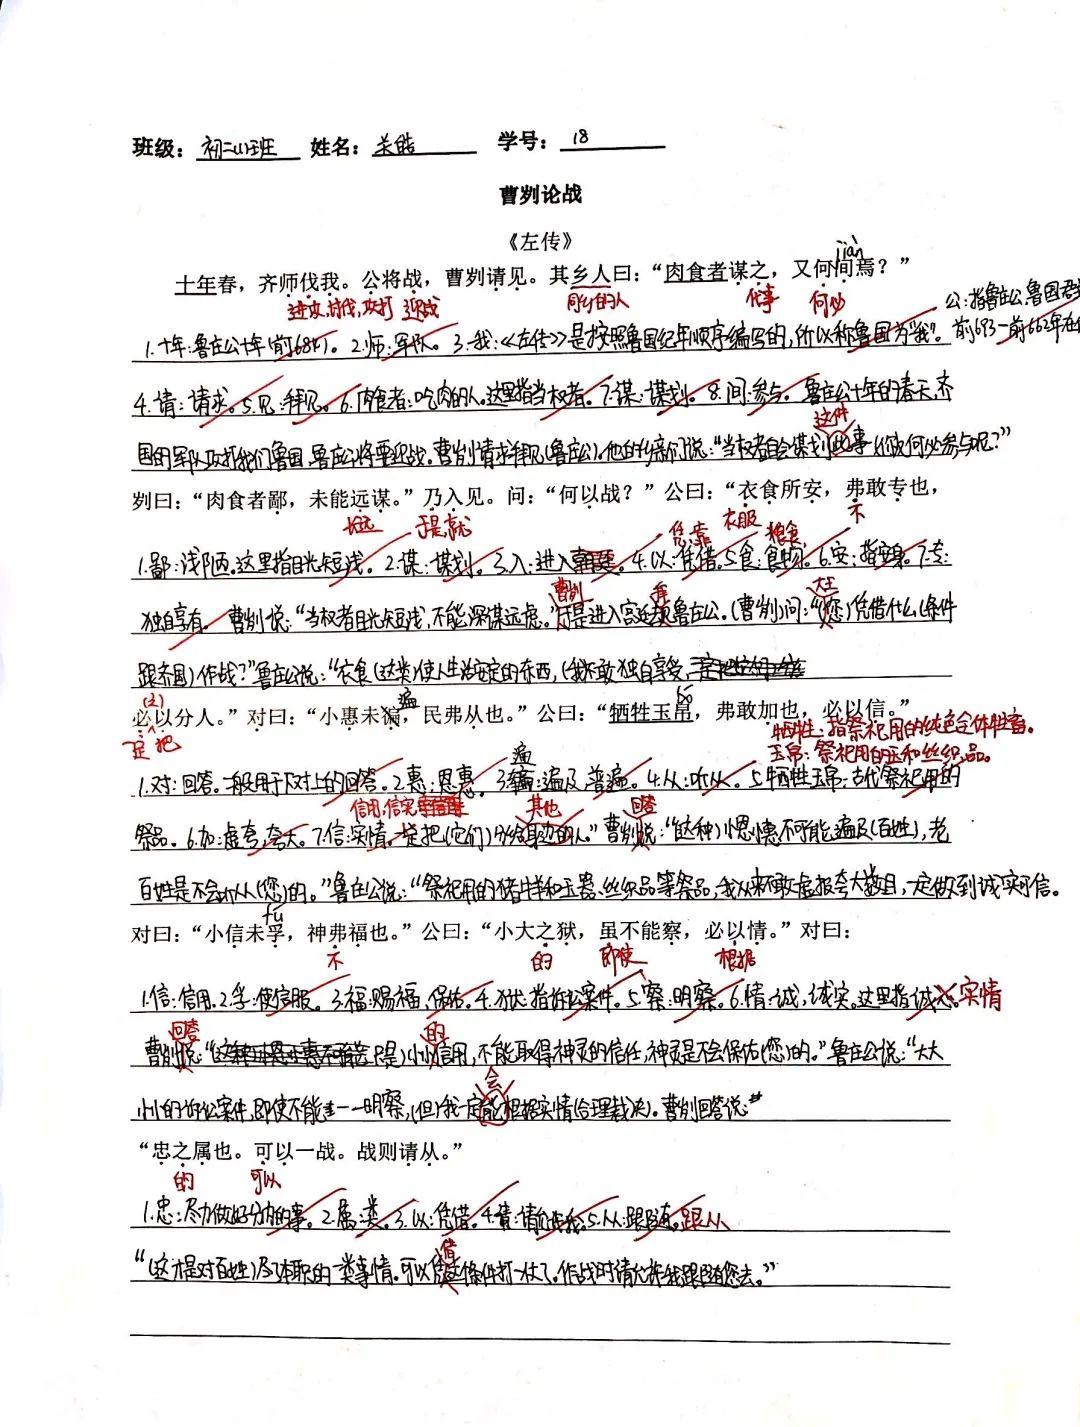 班级：初二(1)班 姓名：关皓 学号：18
曹刿论战
《左传》
jiàn
十年春，齐师伐我。公将战，曹刿请见。其乡人曰：“肉食者谋之，又何间焉？”
进攻,讨伐,攻打 迎战 同乡的人 代事 何必 公:指鲁庄公,鲁国君主
1.十年:鲁庄公十年(前684)。2.师:军队。3.我:《左传》是按照鲁国纪年顺序编写的,所以称鲁国为“我”。 前693—前662年在位
4.请:请求。5.见:拜见。6.肉食者:吃肉的人,这里指当权者。7.谋:谋划。8.间:参与。鲁庄公十年的春天,齐
这件
国的军队攻打我们鲁国,鲁庄公将要迎战。曹刿请求拜见(鲁庄公)。他的乡亲们说:“当权者自会谋划此事,你又何必参与呢?”
刿曰：“肉食者鄙，未能远谋。”乃入见。问：“何以战？”公曰：“衣食所安，弗敢专也，
长远 于是,就 凭,靠 衣服 粮食 不
1.鄙:浅陋。这里指目光短浅。2.谋:谋划。3.入:进入朝廷。4.以:凭借。5.食:食物。6.安:指安身。7.专:
曹刿 拜 大王
独自享有。曹刿说:“当权者目光短浅,不能深谋远虑。”于是进入宫廷见鲁庄公。(曹刿)问:“(您)凭借什么(条件
跟齐国)作战?”鲁庄公说:“衣食(这类)使人生活安定的东西,(我)不敢独自享受,
(之) 遍 bó
必以分人。”对曰：“小惠未徧，民弗从也。”公曰：“牺牲玉帛，弗敢加也，必以信。”
一定 把 牺牲:指祭祀用的纯色全体牲畜。
玉帛:祭祀用的玉和丝织品。
遍
1.对:回答。一般用于下对上的回答。2.惠:恩惠。3.徧:遍及,普遍。4.从:听从。5.牺牲玉帛:古代祭祀用的
信用,信实 其他 回答
祭品。6.加:虚夸,夸大。7.信:实情。一定把(它们)分给身边的人。”曹刿说:“(这种)小恩小惠不可能遍及(百姓),老
百姓是不会听从(您)的。”鲁庄公说:“祭祀用的猪牛羊和玉器、丝织品等祭品,我从来不敢虚报夸大数目,一定做到诚实可信。
fú
对曰：“小信未孚，神弗福也。”公曰：“小大之狱，虽不能察，必以情。”对曰：
不 的 即使 根据
1.信:信用。2.孚:使信服。3.福:赐福,保佑。4.狱:指诉讼案件。5.察:明察。6.情:诚,诚实。这里指诚心。实情
回答 的
曹刿说:“(这只是)小小信用,不能取得神灵的信任,神灵是不会保佑(您)的。”鲁庄公说:“大大
会
小小的诉讼案件,即使不能一一明察,(但)我一定能根据实情(合理裁决)。曹刿回答说:“
“忠之属也。可以一战。战则请从。”
的 可以
1.忠:尽力做好分内的事。2.属:类。3.以:凭借。4.请:请允许我。5.从:跟随。跟从
借
“(这才)是(对百姓)尽了本职的一类事情。可以凭这个条件打一仗了。作战时请允许我跟随您去。”